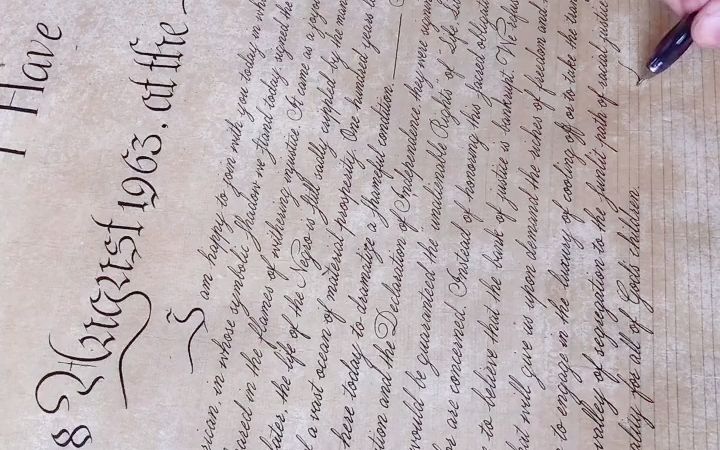 I Have
8 August 1963, at the
I am happy to join with you today in whi
rican, in whose symbolic shadow we stand today signed the
eared in the flames of withering injustice. It came as a joyou
later, the life of the Negro is still sadly crippled by the man
f a vast ocean of material prosperity. One hundred years l
here today to dramatize a shameful condition.
tion and the Declaration of Independence they were signin
would be guaranteed the unalienable Rights of Life Li
or are concerned. Instead of honoring this sacred obligat
e to believe that the bank of justice is bankrupt. We refus
hat will give us upon demand the riches of freedom and
e to engage in the luxury of cooling off or to take the tran
valley of segregation to the sunlit path of racial justice
ality for all of God's children.